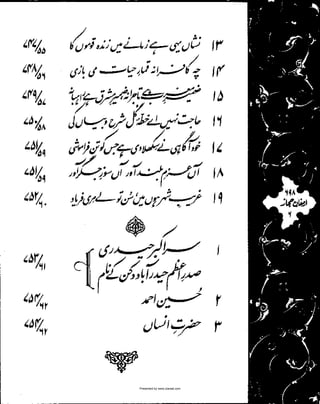 ۱۳ نشاں یہی ہے زمانے میں زندہ قوموں کا ۷۴۷/۵۵
۱۴ چہ کافرانہ قمارِ حیات می بازی ۷۴۸/۵۶
۱۵ ضمیرِ مغرب ہے تاجرانہ ضمیرِ مشرق ہے راہبانہ ۷۴۹/۵۷
۱۶ حاجت نہیں اے خطۂ گل شرح و بیاں کی ۷۵۰/۵۸
۱۷ خود آگاہی نے سکھلا دی ہے جس کو تن فراموشی ۷۵۱/۵۹
۱۸ آں عزمِ بلند آور آں سوزِ جگر آور ۷۵۱/۵۹
۱۹ غریبِ شہر ہوں میں سُن تو لے مری فریاد ۷۵۲/۶۰
۱ سر اکبر حیدری
صدرِ اعظم حیدر آباد دکن کے نام ۷۵۳/۶۱
۲ حسین احمد ۷۵۴/۶۲
۳ حضرتِ انساں ۷۵۴/۶۲
۶۹۸
ارمغانِ حجاز
۶